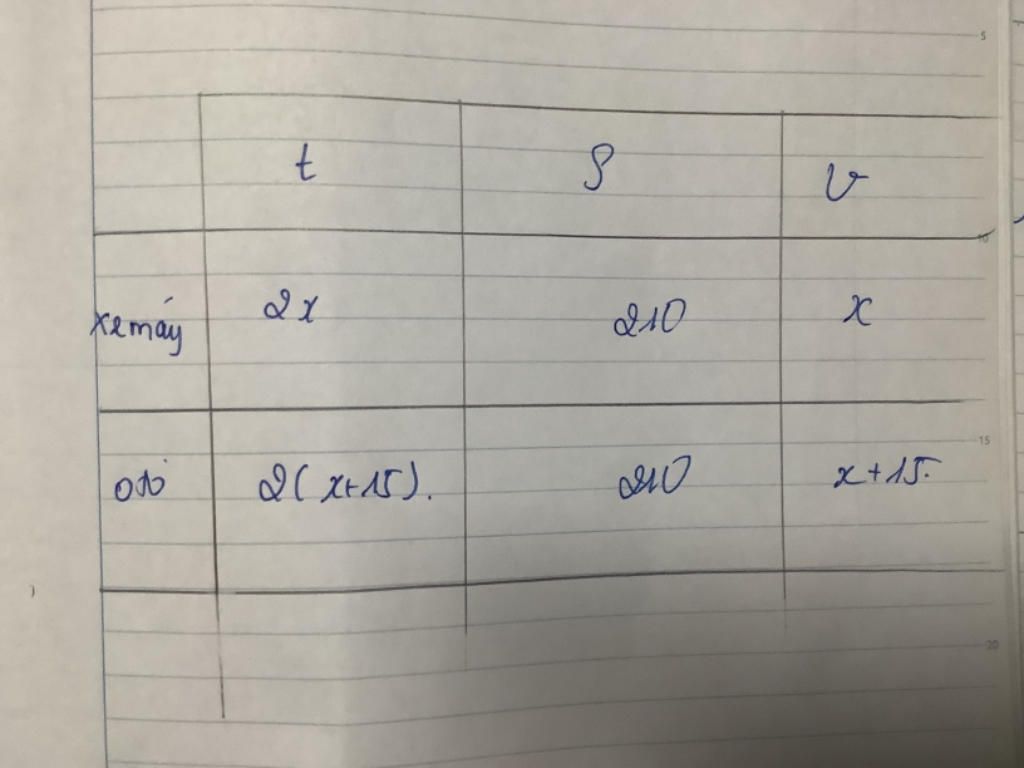 5
t S v
10
xe máy 2x 210 x
15
ôtô 2(x+15). 210 x+15.
20